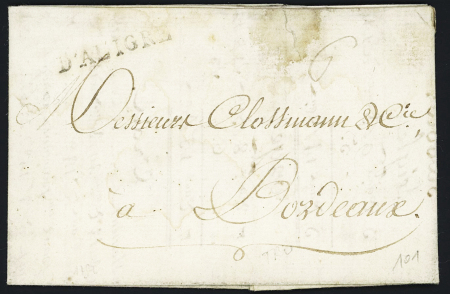 D'ALIGRE
6
Messieurs Clossmann & Cie
à Bordeaux.
101